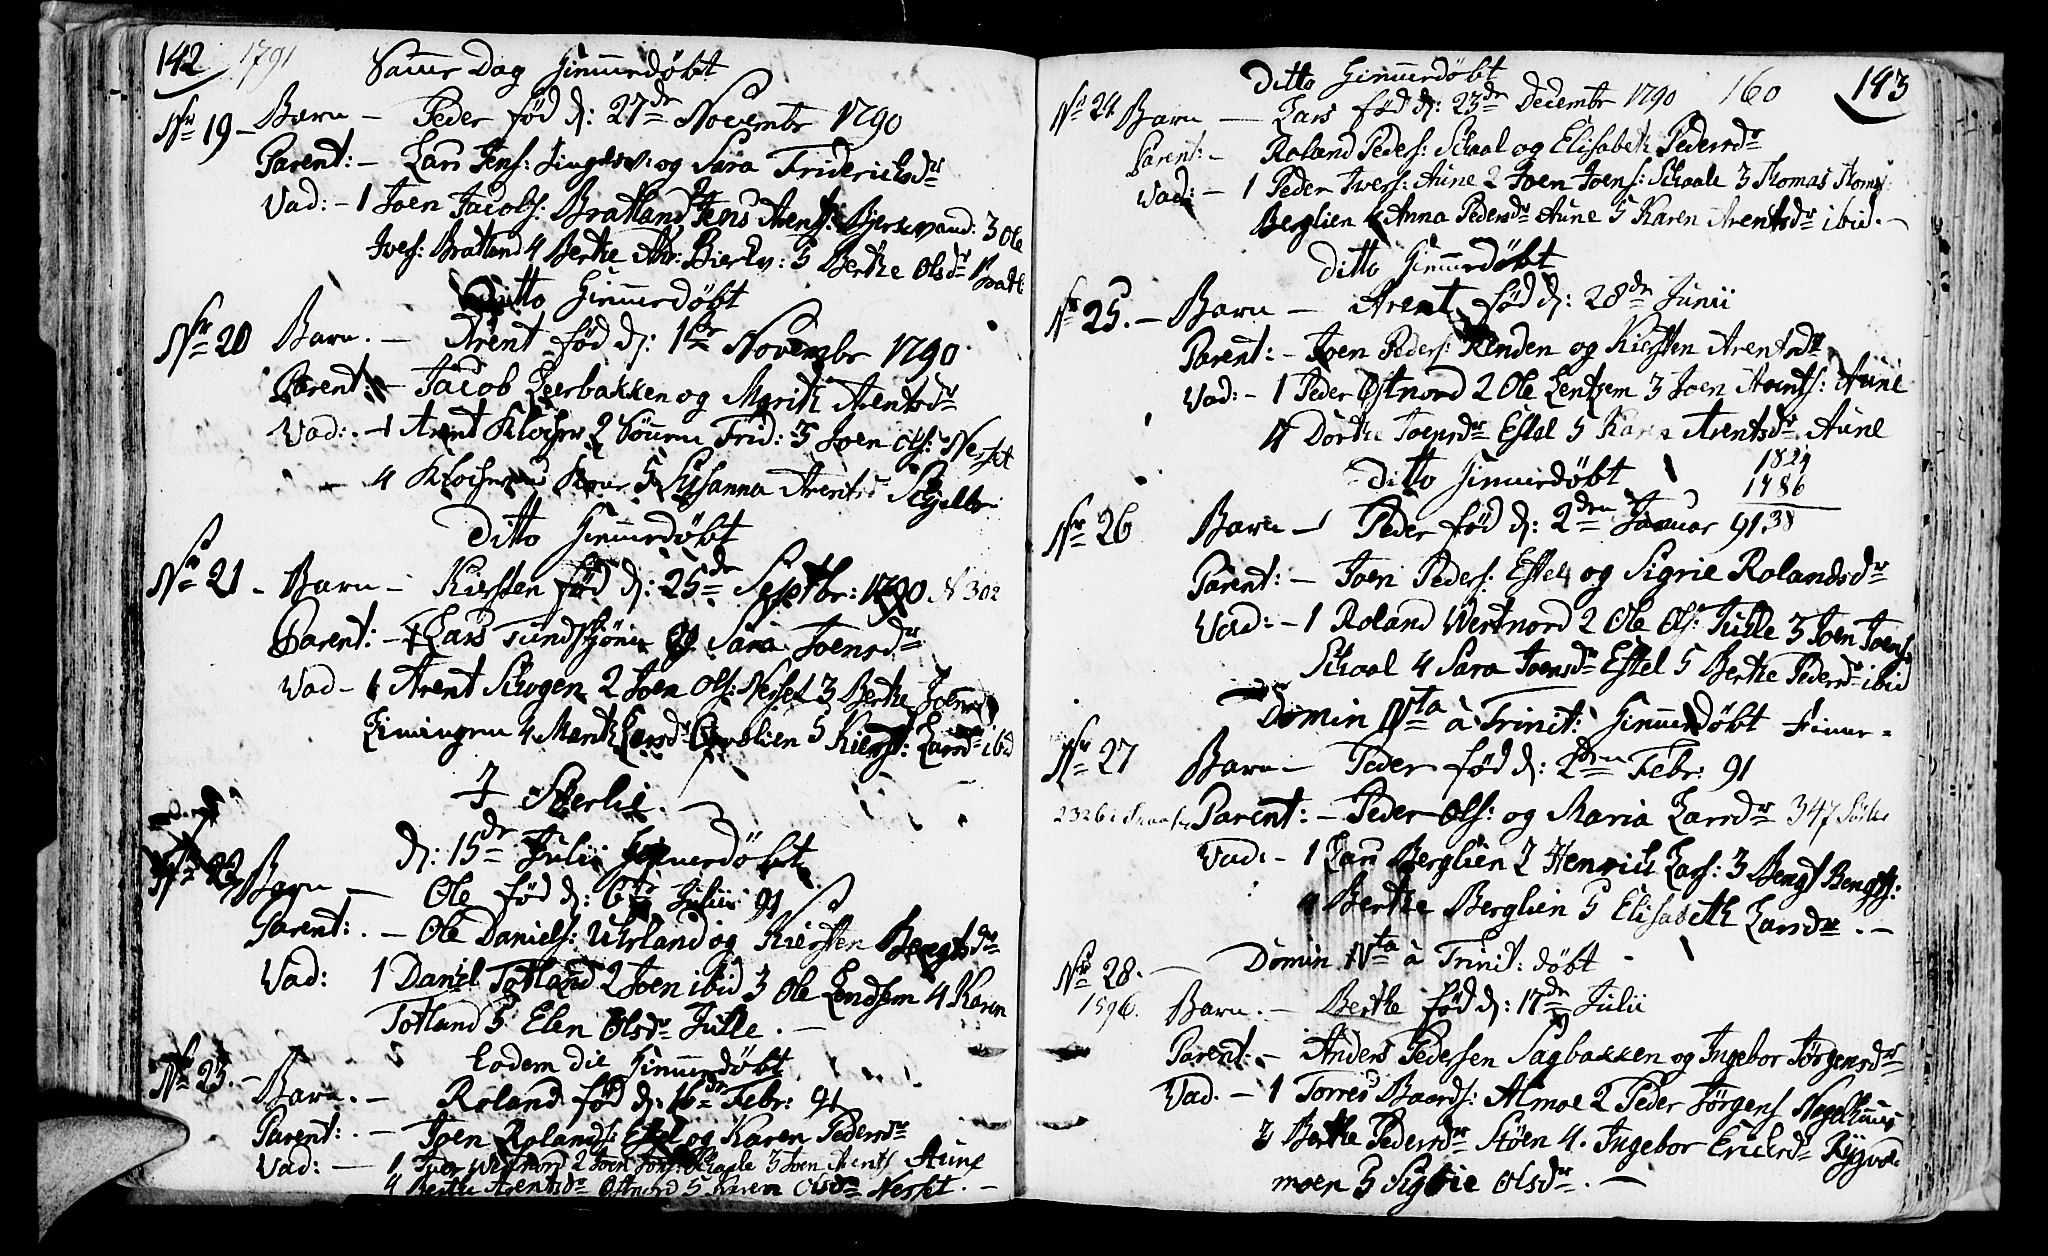 142 1791 Samme Dag Hiemmedøbt
Nr 19 – Barn – Peder fød d: 27de Novembr 1790
Parent: – Lars Jens: og Sara Friderichsdr
Vad: – 1 Joen Jacobs: Bratland Jens Arents: 3 Ole
Ivers: Bratland 4 Berthe 5 Berthe Olsdr Bratl
Ditto Hiemmedøbt
Nr 20 Barn. – Arent fød d: 1ste Novembr 1790
Parent: – Jacob Leerbakken og Marith Arentsdr
Vad: – 1 Arent Klocker 2 Frid: 3 Joen Ols: Nesset
4 5 Susanna Arentsd
Ditto Hiemmedøbt
Nr 21 – Barn – Kiersten fød d: 25de Septbr: 1790 N 302
Parent: – Lars og Sara Joensdr
Vad – 1 Arent Schogen 2 Joen Ols: Nesset 3 Berthe Joensd
4 Marith Larsdr 5 Kierst: Larsdr ibid
I Sterlie. –
d: 15de Julii Hiemmedøbt
Nr 22 Barn – Ole fød d: 6te Julii 91
Parent: – Ole Daniels: Uhrland og Kiersten Bengtsdr
Vad: 1 Daniel Totland 2 Joen ibid 3 Ole Lendsem 4 Karen
Totland 5 Elen Olsdr Julle. –
Eodem die Hiemmedøbt
Nr 23. – Barn. – Roland fød d: 16de Febr: 91
Parent: – Joen Rolands: Estel og Karen Pedersdr
Vad: – 1 Iver Westnord 2 Joen Joens: Schaale 3 Joen Arents Aune
4 Berthe Arentsdr Ostnord 5 Karen Olsdr Nesset. –
Ditto Hiemmedøbt 160 143
Nr 24 Barn – Lars fød d: 23de Decembr 1790
Parent: – Roland Peders: Schaal og Elisabeth Pedersdr
Vad: – 1 Peder Ivers: Aune 2 Joen Joens: Schaale 3 Thomas
Berglien 4 Anna Pedersdr Aune 5 Karen Arentsdr ibid. –
Ditto Hiemmedøbt
Nr 25. – Barn – Arent fød d: 28de Junii
Parent: – Joen Peders: Renden og Kiersten Arentsdr
Vad: – 1 Peder Ostnord 2 Ole Lentsem 3 Joen Arents: Aune
4 Dorthe Joensdr Estel 5 Karen Arentsdr Aune
Ditto Hiemmedøbt 1824
1786
Nr 26 Barn – Peder fød d: 2den Januar 91. 38
Parent: – Joen Peders: Estel og Sigrie Rolandsdr
Vad: – 1 Roland Westnord 2 Ole Ols: Julle 3 Joen Joens:
Schaal 4 Sara Joensdr Estel 5 Berthe Pedersdr ibid
Domin IVta à Trinit: Hiemmedøbt
Nr 27 Barn – Peder fød d: 2den Febr: 91
2326 Parent: – Peder Ols: og Maria Larsdr 347
Vad: – 1 Lars Berglien 2 Henrich Lars: 3 Bengt Bengts:
4 Berthe Berglien 5 Elisabeth Larsdr. –
Domin IVta à Trinit: døbt
Nr 28. –
1596. Barn. – Berthe fød d: 17de Julii
Parent: – Anders Pedersen Sagbakken og Ingebor Jørgensdr
Vad. – 1 Torres Baards: Almoe 2 Peder Jørgens
3 Berthe Pedersdr Støen 4. Ingebor Ericksdr
moen 5 Sigrie Olsdr. –